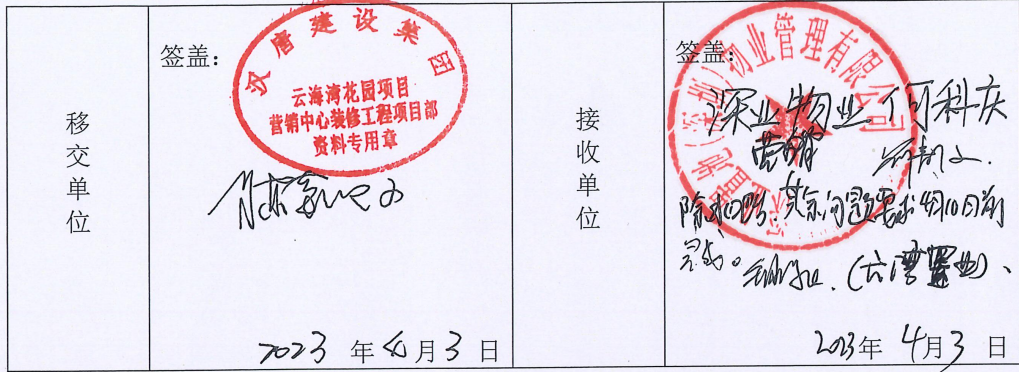 移交单位
签盖：
汉唐建设集团
云海湾花园项目
营销中心装修工程项目部
资料专用章
2023 年 4 月 3 日
接收单位
签盖：
物业管理有限公司
深业物业 何科庆
营销
除 其余问题要求4月10日前
完成。
2023年 4月3日